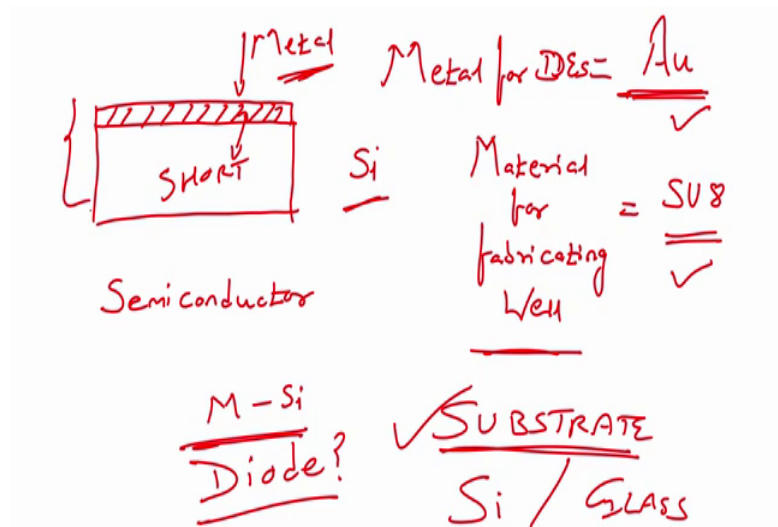 Metal
Metal for IDEs = Au
SHORT
Si
Material
for
fabricating
Well
= SU8
Semiconductor
M-Si
Diode?
SUBSTRATE
Si / GLASS